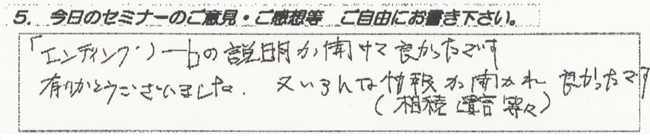 5. 今日のセミナーのご意見・ご感想等 ご自由にお書き下さい。
「エンディングノートの説明が聞けて良かったです
有りがとうございました. 又いろんな情報が聞かれ良かったです
(相続 遺言 等々)